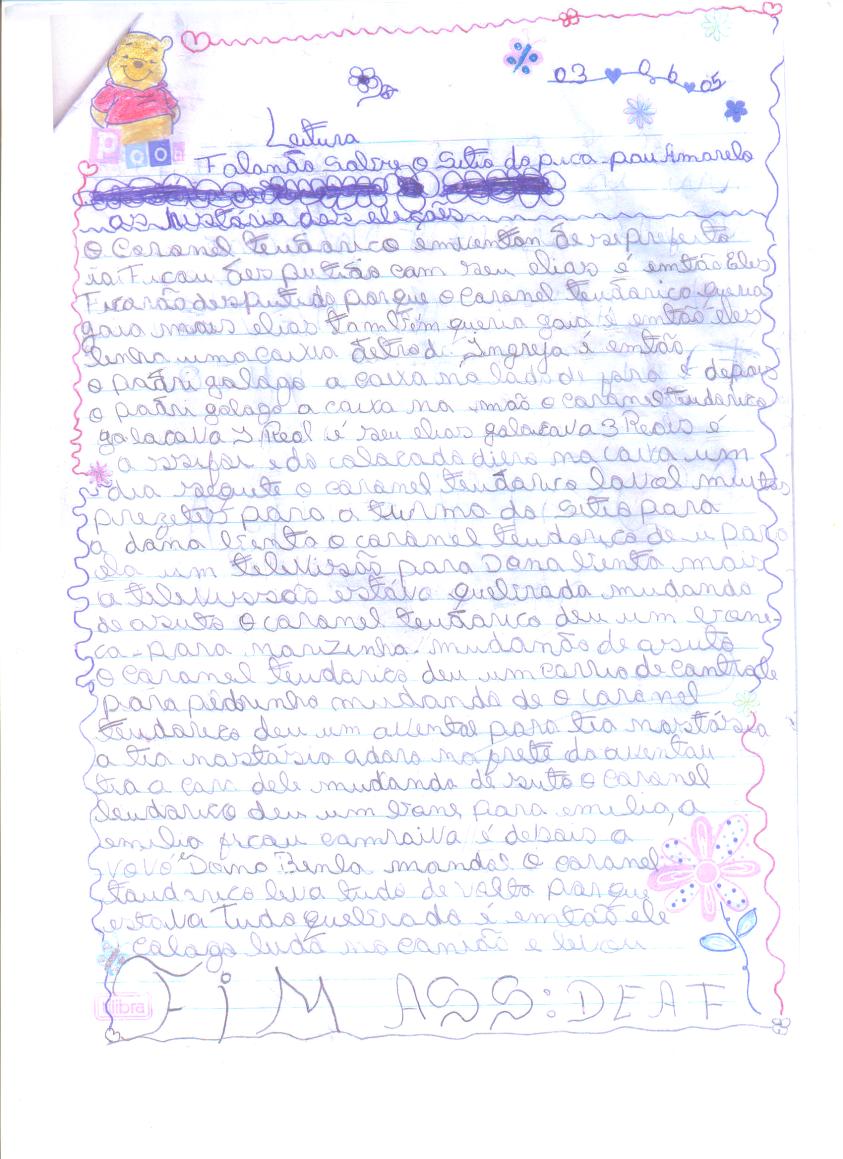 03 06 05
Pooh
Leitura
Falando Sobre o Sitio do pica-pau Amarelo
as história das eleições
O Coronel teudorico emventou de se prefeito
ia Ficou desputado com seu elias é emtão Eles
Ficarão desputido porque o Coronel teudorico queria
gaia mais elias também queria gaia é emtão eles
tinha uma caixa detrod. Ingreja é emtão
o padri golago a caixa no lado di fora é depois
o padri golago a caixa na mão o Coronel teudorico
galacava 1 Real é seu elias galacava 3 Reais é
a colacado diero na caixa um
dia o coronel teudorico lavol muitos
prezetes para a turma do sitio para
a dona benta o coronel teudorico deu para
ela um televisão para Dona benta mais
a televissão estava quebrada mudando
de asuto o coronel teudorico deu um bone-
ca-para narizinho. mudando de asuto
o coronel teudorico deu um carrio de controle
para pedrinho mudando de o coronel
teudorico deu um avental para tia nastásia
a tia nastásia adoro na prete do avental
tia a cara dele mudando di suto o coronel
teudorico deu um bone para emilia, a
emilia ficou comraiva é depois a
vovó Dona Benta mandol o coronel
teudorico leva tudo de volta porque
estava Tudo quebrado é emtão ele
calago tudo no camião e levou
FiM ASS: DEAF
libra